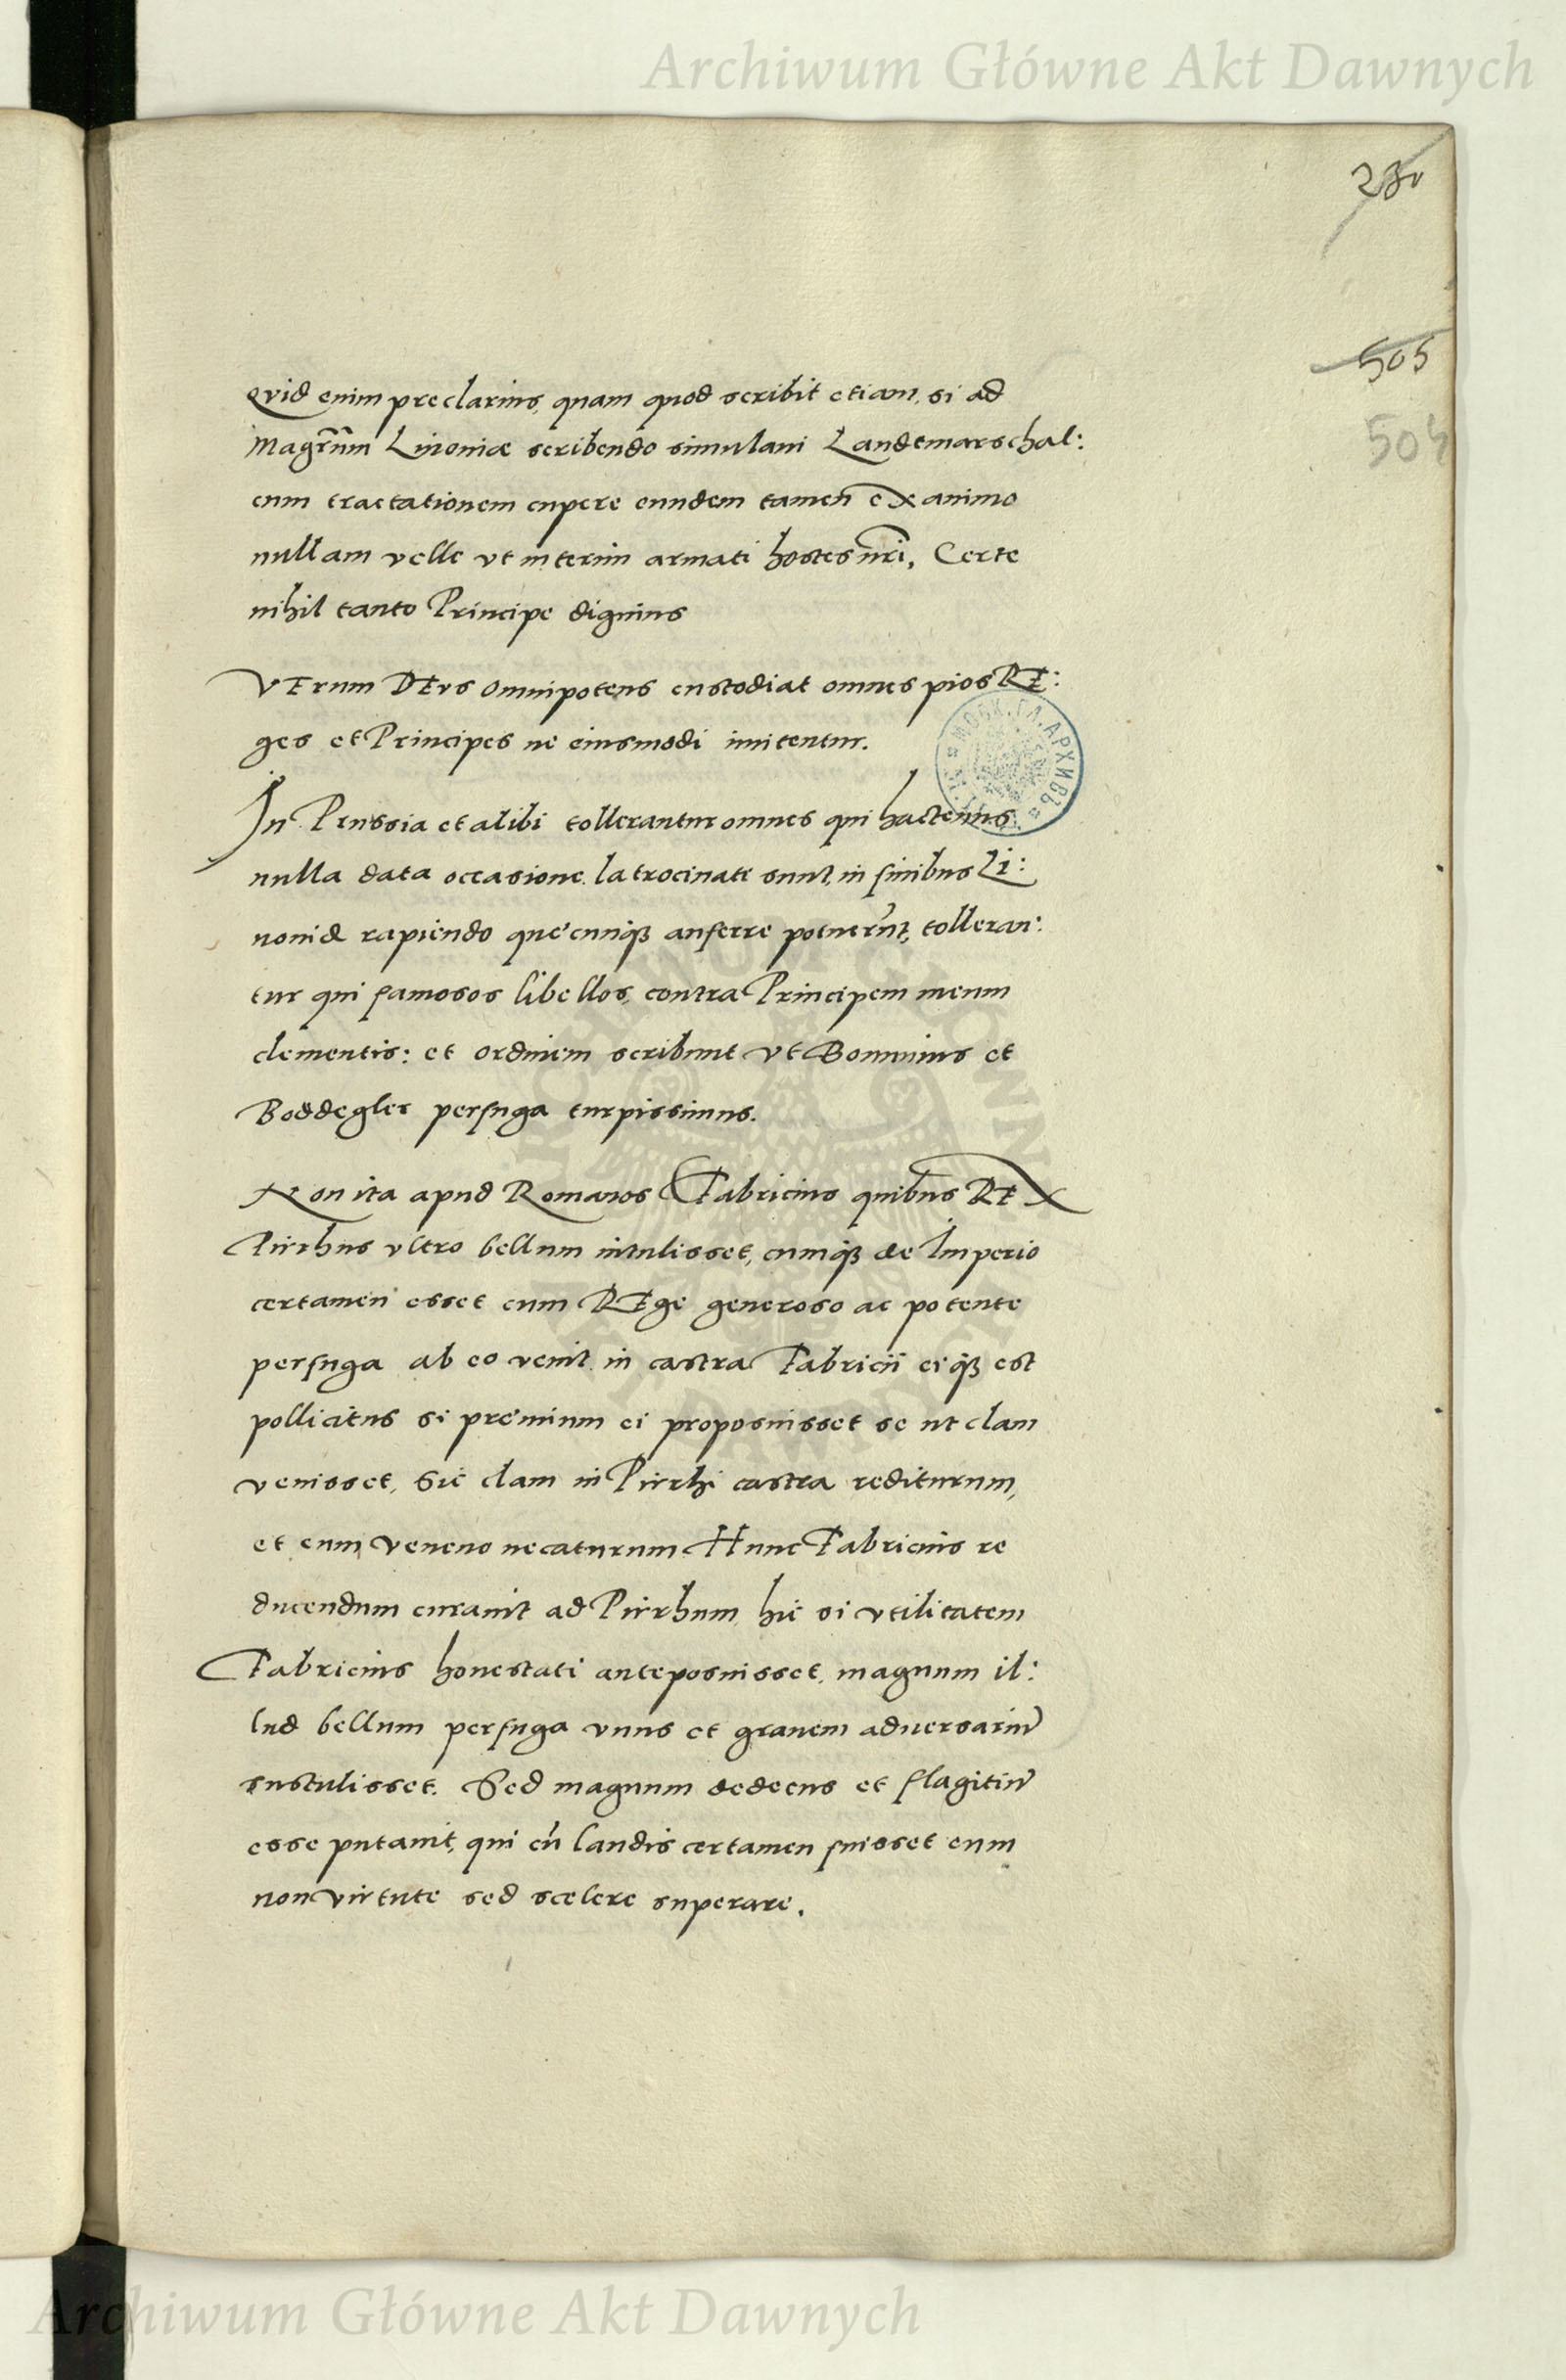 Archiwum Główne Akt Dawnych
230
505
504
Qvid enim preclarius, quam quod scribit etiam, si ad
Magrum̃ Liuoniæ scribendo simulaui Landemarschal:
cum tractationem cupere eundem tamen ex animo
nullam velle vt interim armati hostes nr̃i, Certe
nihil tanto Principe dignius
VErum DEvs omnipotens custodiat omnes pios RE:
ges et Principes ne eiusmodi imitentur.
In Prussia et alibi tollerantur omnes qui hactenus
nulla data occasione latrocinati sunt, in finibus Li:
uoniæ rapiendo quecunq; auferre potuerũt, tolleran:
tur qui famosos libellos, contra Principem meum
clementis: et ordinem scribunt vt Bomuius et
Boddegler perfuga turpissimus.
Non ita apud Romanos Fabricius quibus REX
Pirrhus vltro bellum intulisset, cumq; de Imperio
certamen esset cum REge generoso ac potente
perfuga ab eo venit in castra Fabricii eiq; est
pollicitus si premium ei proposuisset se ut clam
venisset, Sic clam in Pirrhi castra rediturum,
et eum veneno necaturum Hunc Fabricius re
ducendum curauit ad Pirrhum, hic si vtilitatem
Fabricius honestati anteposuisset, magnum il:
lud bellum perfuga vnus et grauem aduersariũ
sustulisset. Sed magnum dedecus et flagitiũ
esse putauit, qui cũ laudis certamen fuisset eum
non virtute sed scelere superare.
Archiwum Główne Akt Dawnych